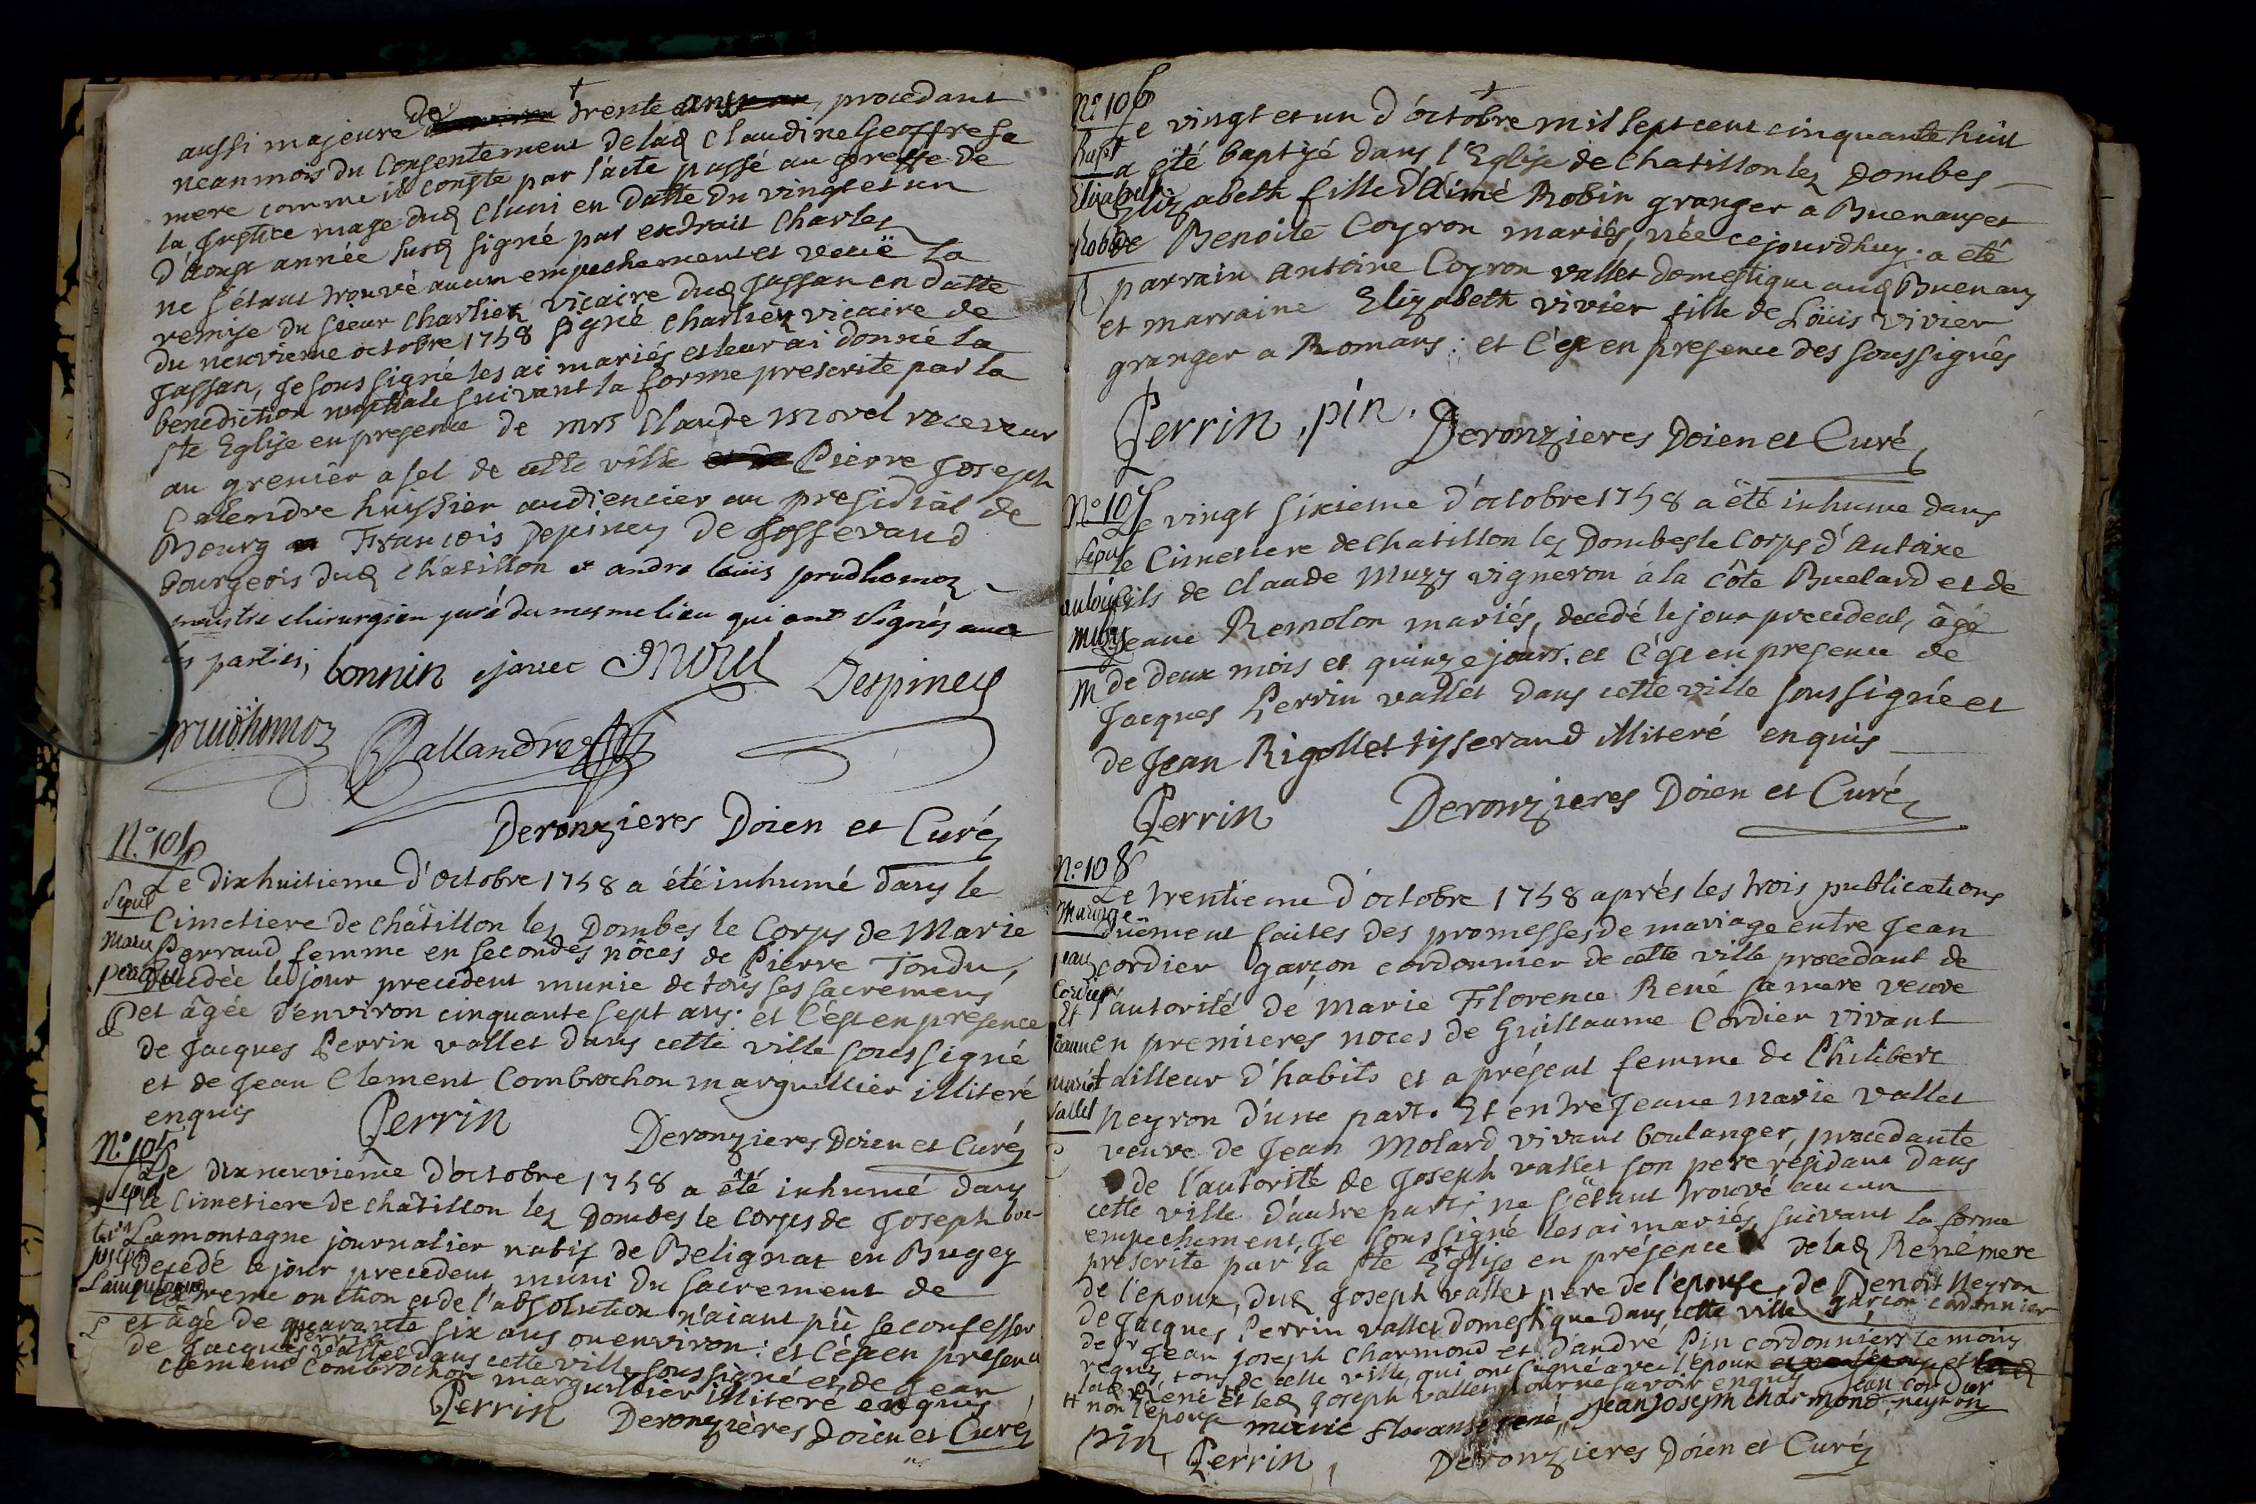 aussi majeure de trente ans, procedant
neanmois du Consentement de lad Claudine Geoffre sa
mere comme il conste par l'acte passé au greffe de
la Justice mage dud Cluni en datte du vingt et un
d'aoust année susd signé par extrait Charles
ne s'étant trouvé aucun empechement et veuë la
remise du sieur Charlier vicaire dud Jassan en datte
du neuvieme octobre 1758 signé Charlier vicaire de
Jassan, Je soussigné les ai mariés et leur ai donné la
benediction nuptiale suivant la forme prescrite par la
ste Eglise en presence de mrs Claude morel receveur
au grenier a sel de cette ville Pierre Joseph
Calendre huissier audiencier au presidial de
Bourg François Depiney de
bourgeois dud Châtillon et andre loüis prudhomoz
maistre chirurgien juré du mesme lieu qui ont signés avec
les parties;
bonnin Morel Despiney
prudhomoz Callandre
Deronzieres Doien et Curé
N.º 104
Le dixhuitieme d'Octobre 1758 a été inhumé dans le
Sepul
Cimetiere de châtillon lez Dombes le Corps de Marie
Marie Perraud femme en secondes nôces de Pierre Tondu,
decedée le jour precedent munie de tous ses sacremens
et âgée d'environ cinquante sept ans: et c'est en presence
de Jacques Perrin vallet dans cette ville soussigné
et de Jean Clement Combrochon marguillier illiteré
enquis
Perrin Deronzieres Doien et Curé
N.º 105
Le dix neuvieme d'octobre 1758 a été inhumé dans
Sepul
le Cimetiere de châtillon lez Dombes le Corps de Joseph
Lamontagne journalier natif de Belignat en Bugey
decedé le jour precedent muni du sacrement de
l'extreme onction et de l'absolution n'aiant pû se confesser
et âgé de quarante six ans ou environ: et c'est en presence
de Jacques Perrin vallet dans cette ville soussigné et de Jean
Clement Combrochon marguillier illiteré enquis
Perrin Deronzières Doien et Curé
N.º 106
Le vingt et un d'octobre mil sept cent cinquante huit
Bapt
a été baptisé dans l'Eglise de Chatillon lez Dombes
Elizabeth
Elizabeth fille d'Aimé Robin granger a Buenans et
Robin
de Benoite Coyron mariés, née cejourdhuy: a été
parrain Antoine Coyron vallet domestique aud Buenans
et marraine Elizabeth vivier fille de Loüis vivier
granger a Romans: et c'est en presence des soussignés
Perrin, pin. Deronzieres Doien et Curé
N.º 107
Le vingt sixieme d'octobre 1758 a été inhumé dans
Sepul
le Cimetiere de chatillon lez Dombes le Corps d'Antoine
antoine
fils de Claude Muzy vigneron à la Côte Buelard et de
Muzy
Jeane Remolon mariés, decedé le jour precedent, âgé
de deux mois et quinze jours. et c'est en presence de
Jacques Perrin vallet dans cette ville soussigné et
de Jean Rigollet tisserand illiteré enquis
Perrin Deronzieres Doien et Curé
N.º 108
Le trentieme d'octobre 1758 aprés les trois publications
Mariage
duëment faites des promesses de mariage entre Jean
jean
cordier garçon cordonnier de cette ville procedant de
Cordier
l'autorité de Marie Florence René sa mere veuve
Et
en premieres noces de Guillaume Cordier vivant
jeanne
tailleur d'habits et a présent femme de Philibert
marie
vallet
Neyron d'une part. Et entre Jeane marie vallet
veuve de Jean Molard vivant boulanger, procedante
de l'autorité de Joseph vallet son pere résidant dans
cette ville d'autre part; ne s'étant trouvé aucun
empechement, Je soussigné les ai mariés, suivant la forme
prescrite par la ste Eglise en présence de lad René mere
de l'epoux, dud Joseph vallet pere de l'epouse, de Benoit Neyron
garçon cordonnier
de Jacques Perrin vallet domestique dans cette ville
de Sr Jean Joseph Charmond et d'andré Pin cordonniers temoins
requis, tous de cette ville, qui ont signé avec l'epoux et
lad René et led Joseph vallet pour ne savoir enquis
non l'epouse
Jean cordier
marie florance rené, jean joseph charmond, neyron
pin Perrin, Deronzieres Doien et Curé